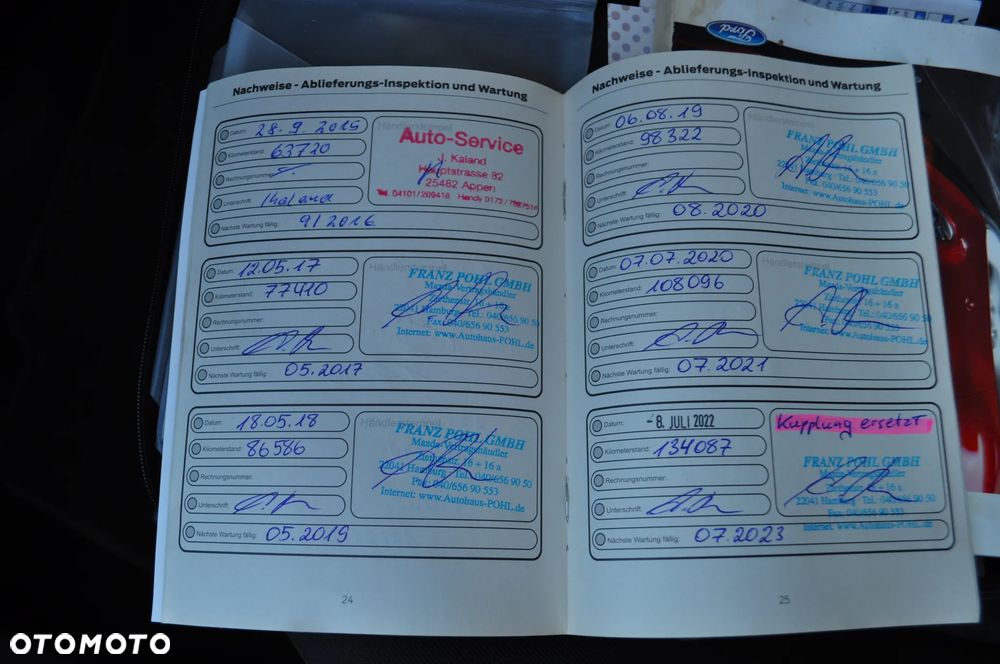 Ford
Nachweise - Ablieferungs-Inspektion und Wartung
Datum: 28.9.2015
Kilometerstand: 63720
Rechnungsnummer:
Unterschrift: Kaland
Nächste Wartung fällig: 9/2016
Händlerstempel
Auto-Service
J. Kaland
Hauptstrasse 82
25482 Appen
Tel. 04101/209418 Handy 0172/
Datum: 12.05.17
Kilometerstand: 77410
Rechnungsnummer:
Unterschrift:
Nächste Wartung fällig: 05.2017
Händlerstempel
FRANZ POHL GMBH
Mazda-Vertragshändler
Ziethenstr. 16 + 16 a
22041 Hamburg · Tel.: 040/656 90 50
Fax 040/656 90 553
Internet: www.Autohaus-POHL.de
Datum: 18.05.18
Kilometerstand: 86586
Rechnungsnummer:
Unterschrift:
Nächste Wartung fällig: 05.2019
Händlerstempel
FRANZ POHL GMBH
Mazda-Vertragshändler
Ziethenstr. 16 + 16 a
22041 Hamburg · Tel.: 040/656 90 50
Fax: 040/656 90 553
Internet: www.Autohaus-POHL.de
24
Nachweise - Ablieferungs-Inspektion und Wartung
Datum: 06.08.19
Kilometerstand: 98322
Rechnungsnummer:
Unterschrift:
Nächste Wartung fällig: 08.2020
Händlerstempel
FRANZ POHL GMBH
Mazda-Vertragshändler
Ziethenstr. 16 + 16 a
22041 Hamburg · Tel.: 040/656 90 50
Fax: 040/656 90 553
Internet: www.Autohaus-POHL.de
Datum: 07.07.2020
Kilometerstand: 108096
Rechnungsnummer:
Unterschrift:
Nächste Wartung fällig: 07.2021
Händlerstempel
FRANZ POHL GMBH
Mazda-Vertragshändler
Ziethenstr. 16 + 16 a
22041 Hamburg · Tel.: 040/656 90 50
Fax: 040/656 90 553
Internet: www.Autohaus-POHL.de
Datum: - 8. JULI 2022
Kilometerstand: 134087
Rechnungsnummer:
Unterschrift:
Nächste Wartung fällig: 07.2023
Kupplung ersetzt
FRANZ POHL GMBH
Mazda-Vertragshändler
Ziethenstr. 16 + 16 a
22041 Hamburg · Tel.: 040/656 90 50
Fax: 040/656 90 553
Internet: www.Autohaus-POHL.de
25
OTOMOTO